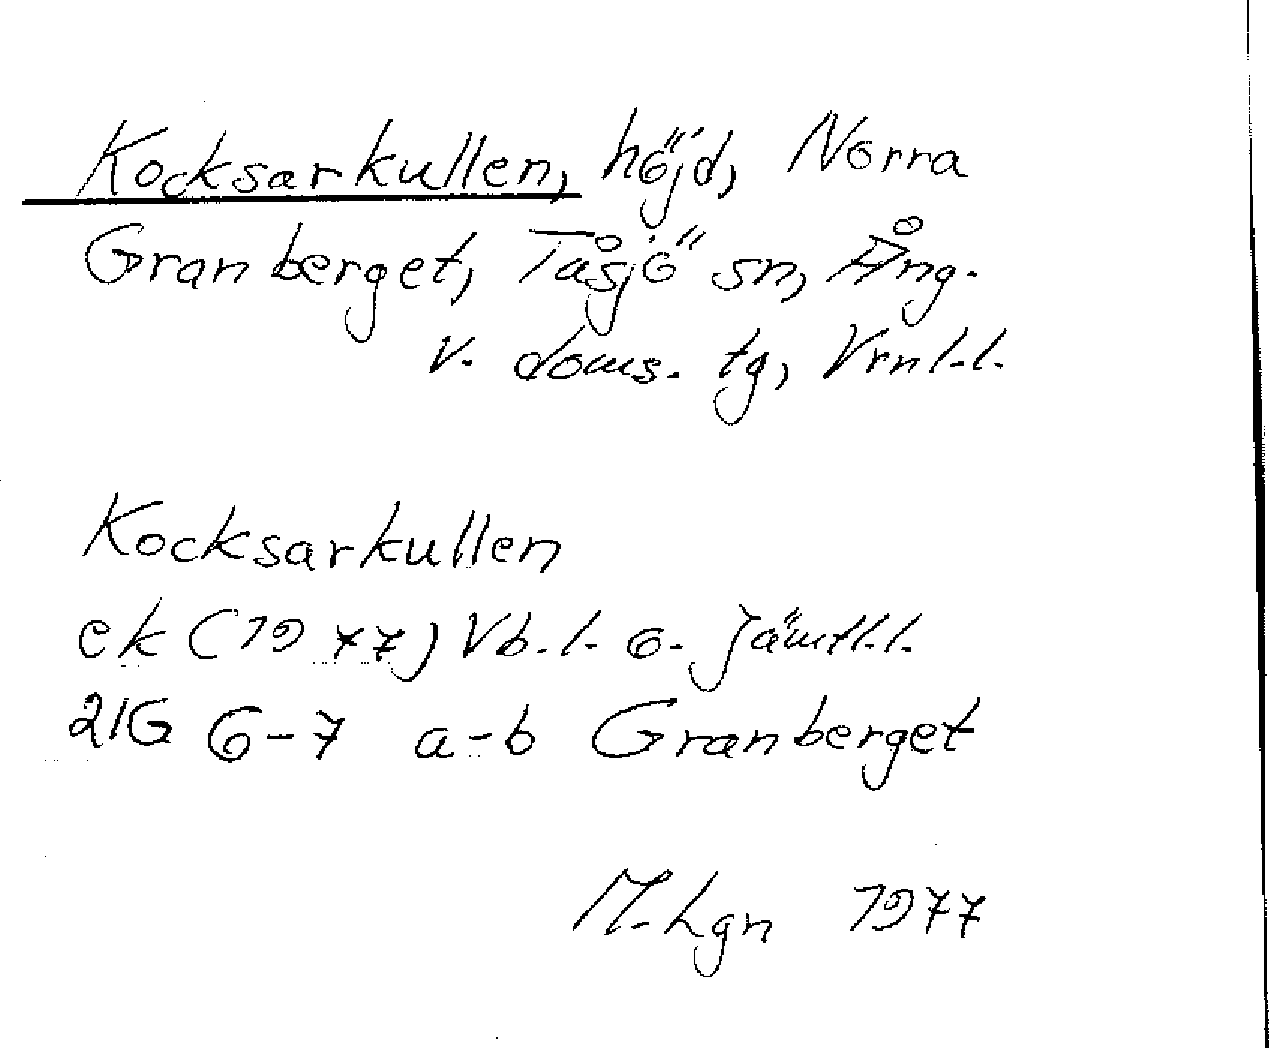 Kocksarkullen, höjd, Norra
Granberget, Tåsjö sn, Ång.
v. doms. tg, Vrnl.l.
Kocksarkullen
ek (1977) Vb.l. o. Jämtl.l.
21G 6-7 a-b Granberget
M. Lgn 1977